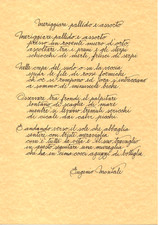 Meriggiare pallido e assorto
Meriggiare pallido e assorto
presso un rovente muro d'orto
ascoltare tra i pruni e gli sterpi
schiocchi di merli, frusci di serpi
Nelle crepe del suolo o su la veccia
spiar le file di rosse formiche
ch'ora si rompono ed ora s'intrecciano
a sommo di minuscole biche
Osservare tra frondi il palpitare
lontano di scaglie di mare
mentre si levano tremuli scricchi
di cicale dai calvi picchi
E andando verso il sole che abbaglia
sentire con triste meraviglia
com'è tutta la vita e il suo travaglio
in questo seguitare una muraglia
che ha in cima cocci aguzzi di bottiglia
Eugenio Montale